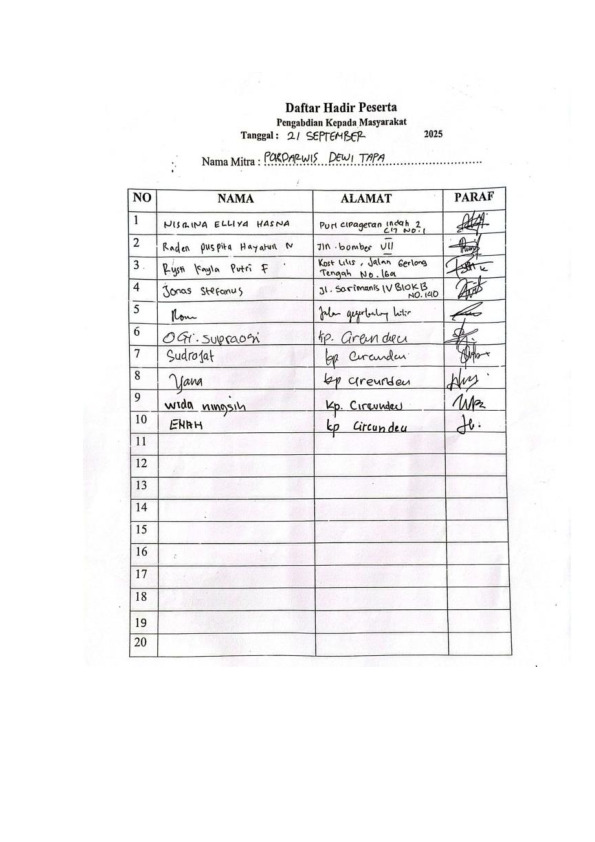 Daftar Hadir Peserta
Pengabdian Kepada Masyarakat
Tanggal : 21 SEPTEMBER 2025
Nama Mitra : POKDARWIS DEWI TAPA
NO NAMA ALAMAT PARAF
1 NISRINA ELLIYA HASNA Puri cipageran indah 2
C17 NO.1
2 Raden puspita Hayatun N Jln. bomber VII
3 Kayla Putri F Kost Lilis, Jalan Gerlong
Tengah No.16a
4 Jonas Stefanus Jl. Sarimanis IV BLOK B
NO.140
5 Jalan hilir
6 OGI. Supraogi kp. Cireundeu
7 Sudrajat kp Circundeu
8 Yana kp Cireundeu
9 wida ningsih Kp. Cireundeu
10 ENAH kp Circundeu
11
12
13
14
15
16
17
18
19
20